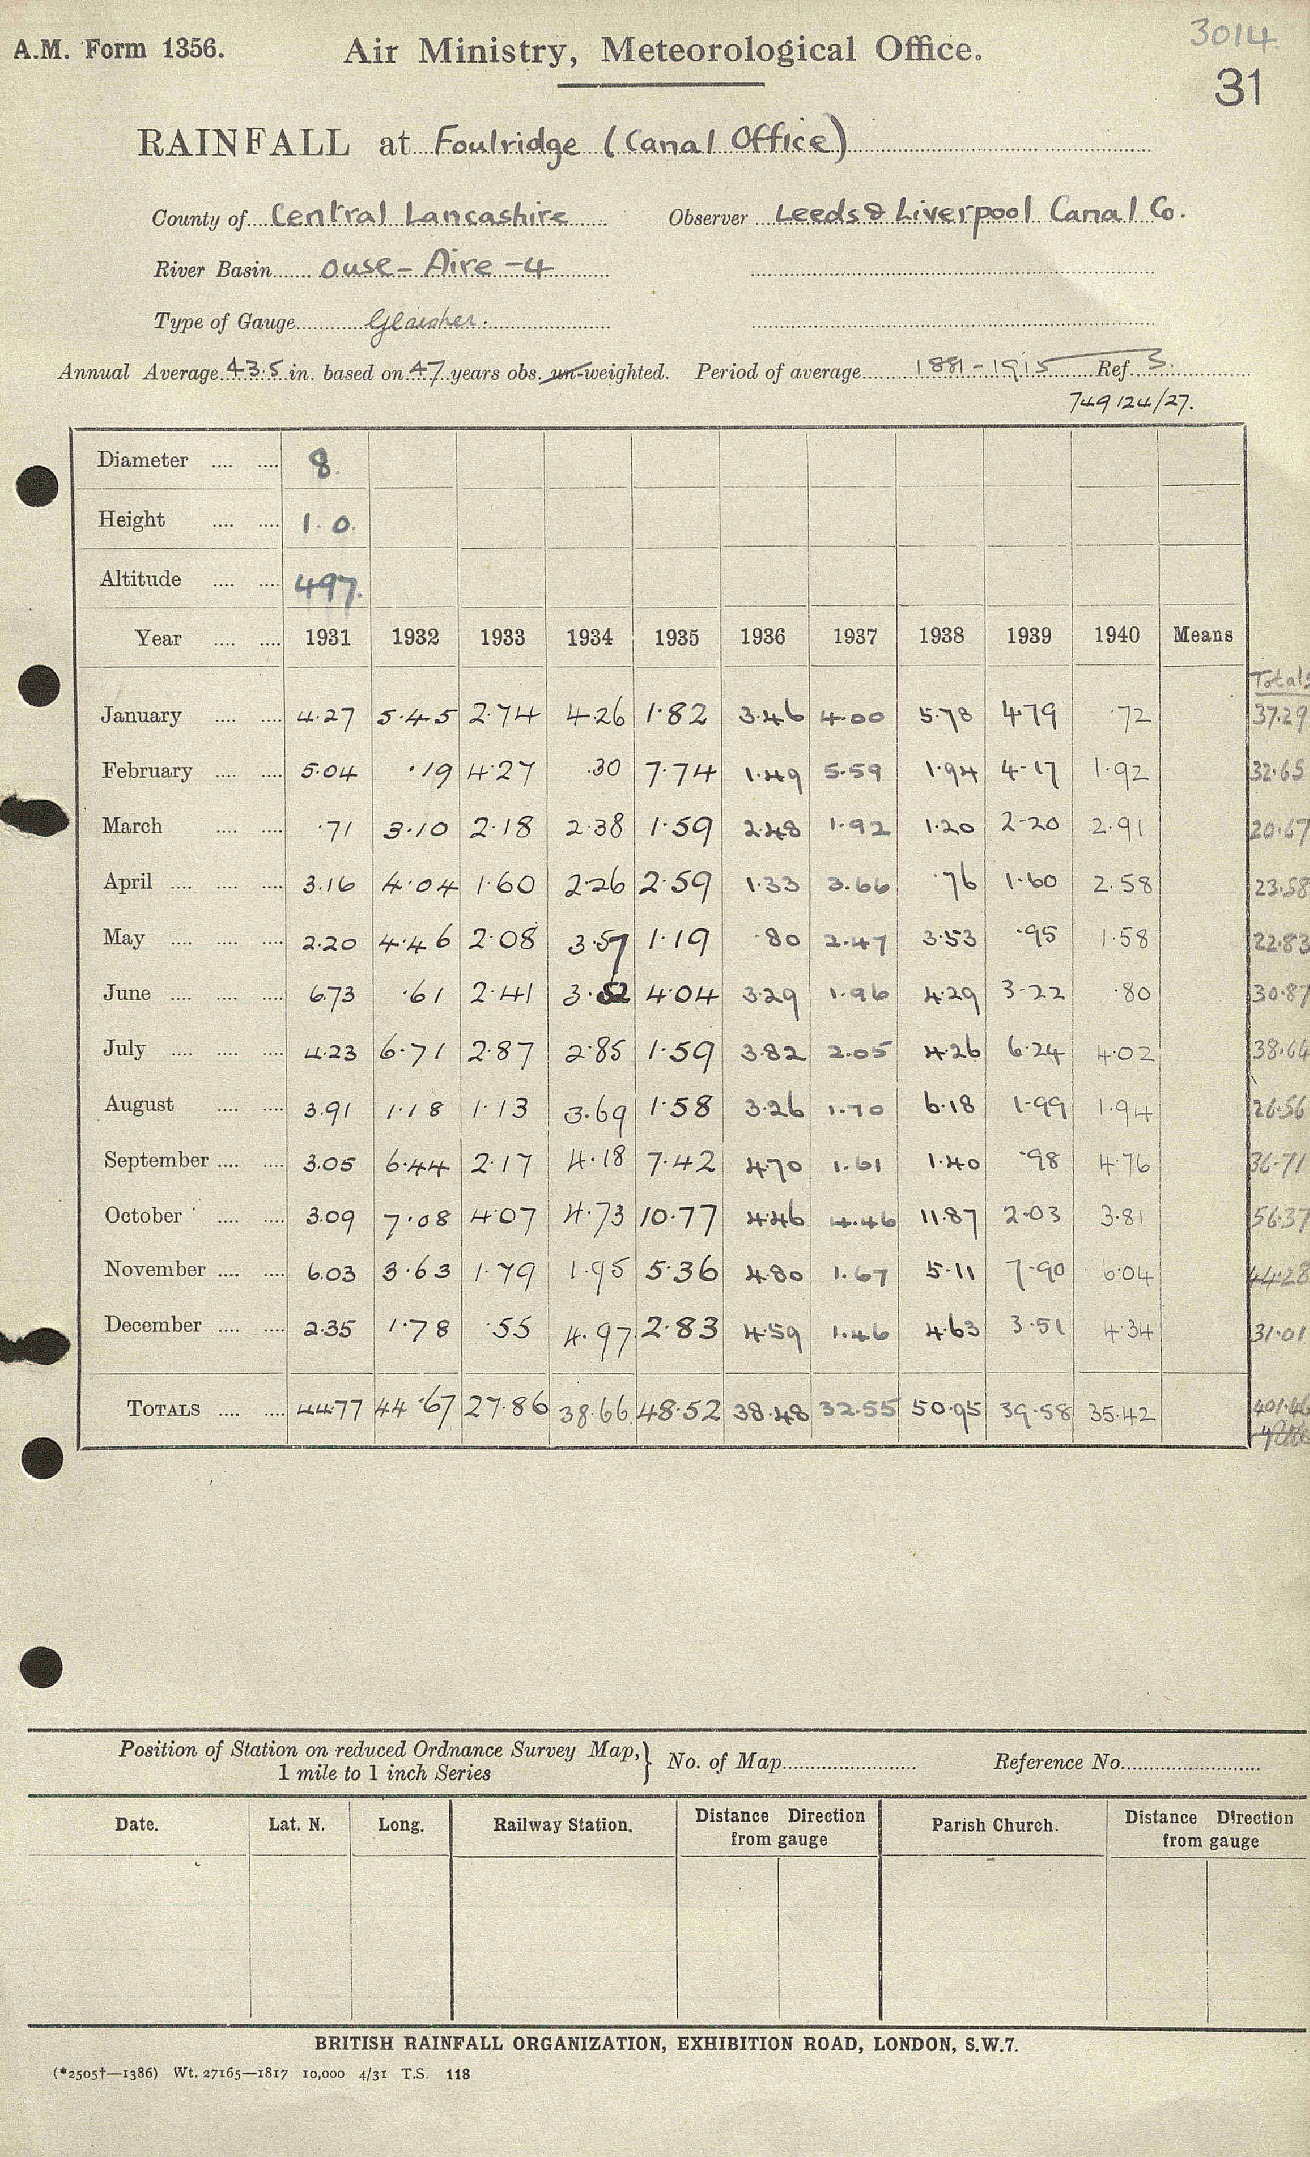 A.M. Form 1356.
Air Ministry, Meteorological Office.
3014
31
RAINFALL at Foulridge (Canal Office)
County of Central Lancashire Observer Leeds & Liverpool Canal Co.
River Basin Ouse - Aire - 4
Type of Gauge Glaisher.
Annual Average 43.5 in. based on 47 years obs. un-weighted. Period of average 1881-1915 Ref. S.
749124/27.
Diameter .... .... 8.
Height .... .... 1. 0.
Altitude .... .... 497.
Year .... .... 1931 1932 1933 1934 1935 1936 1937 1938 1939 1940 Means
Totals
January .... .... 4.27 5.45 2.74 4.26 1.82 3.46 4.00 5.78 4.79 .72 37.29
February .... .... 5.04 .19 4.27 .30 7.74 1.49 5.59 1.94 4.17 1.92 32.65
March .... .... .71 3.10 2.18 2.38 1.59 2.48 1.92 1.20 2.20 2.91 20.67
April .... .... .... 3.16 4.04 1.60 2.26 2.59 1.33 3.66 .76 1.60 2.58 23.58
May .... .... .... 2.20 4.46 2.08 3.57 1.19 .80 2.47 3.53 .95 1.58 22.83
June .... .... .... 6.73 .61 2.41 3.52 4.04 3.29 1.96 4.29 3.22 .80 30.87
July .... .... .... 4.23 6.71 2.87 2.85 1.59 3.82 2.05 4.26 6.24 4.02 38.64
August .... .... 3.91 1.18 1.13 3.69 1.58 3.26 1.70 6.18 1.99 1.94 26.56
September .... .... 3.05 6.44 2.17 4.18 7.42 4.70 1.61 1.40 .98 4.76 36.71
October .... .... 3.09 7.08 4.07 4.73 10.77 4.46 4.46 11.87 2.03 3.81 56.37
November .... .... 6.03 3.63 1.79 1.95 5.36 4.80 1.67 5.11 7.90 6.04 44.28
December .... .... 2.35 1.78 .55 4.97 2.83 4.59 1.46 4.63 3.51 4.34 31.01
TOTALS .... .... 44.77 44.67 27.86 38.66 48.52 38.48 32.55 50.95 39.58 35.42 401.46
Position of Station on reduced Ordnance Survey Map,
1 mile to 1 inch Series } No. of Map Reference No.
Date. Lat. N. Long. Railway Station. Distance Direction from gauge Parish Church. Distance Direction from gauge
BRITISH RAINFALL ORGANIZATION, EXHIBITION ROAD, LONDON, S.W.7.
(*2505†—1386) Wt. 27165—1817 10,000 4/31 T.S. 118